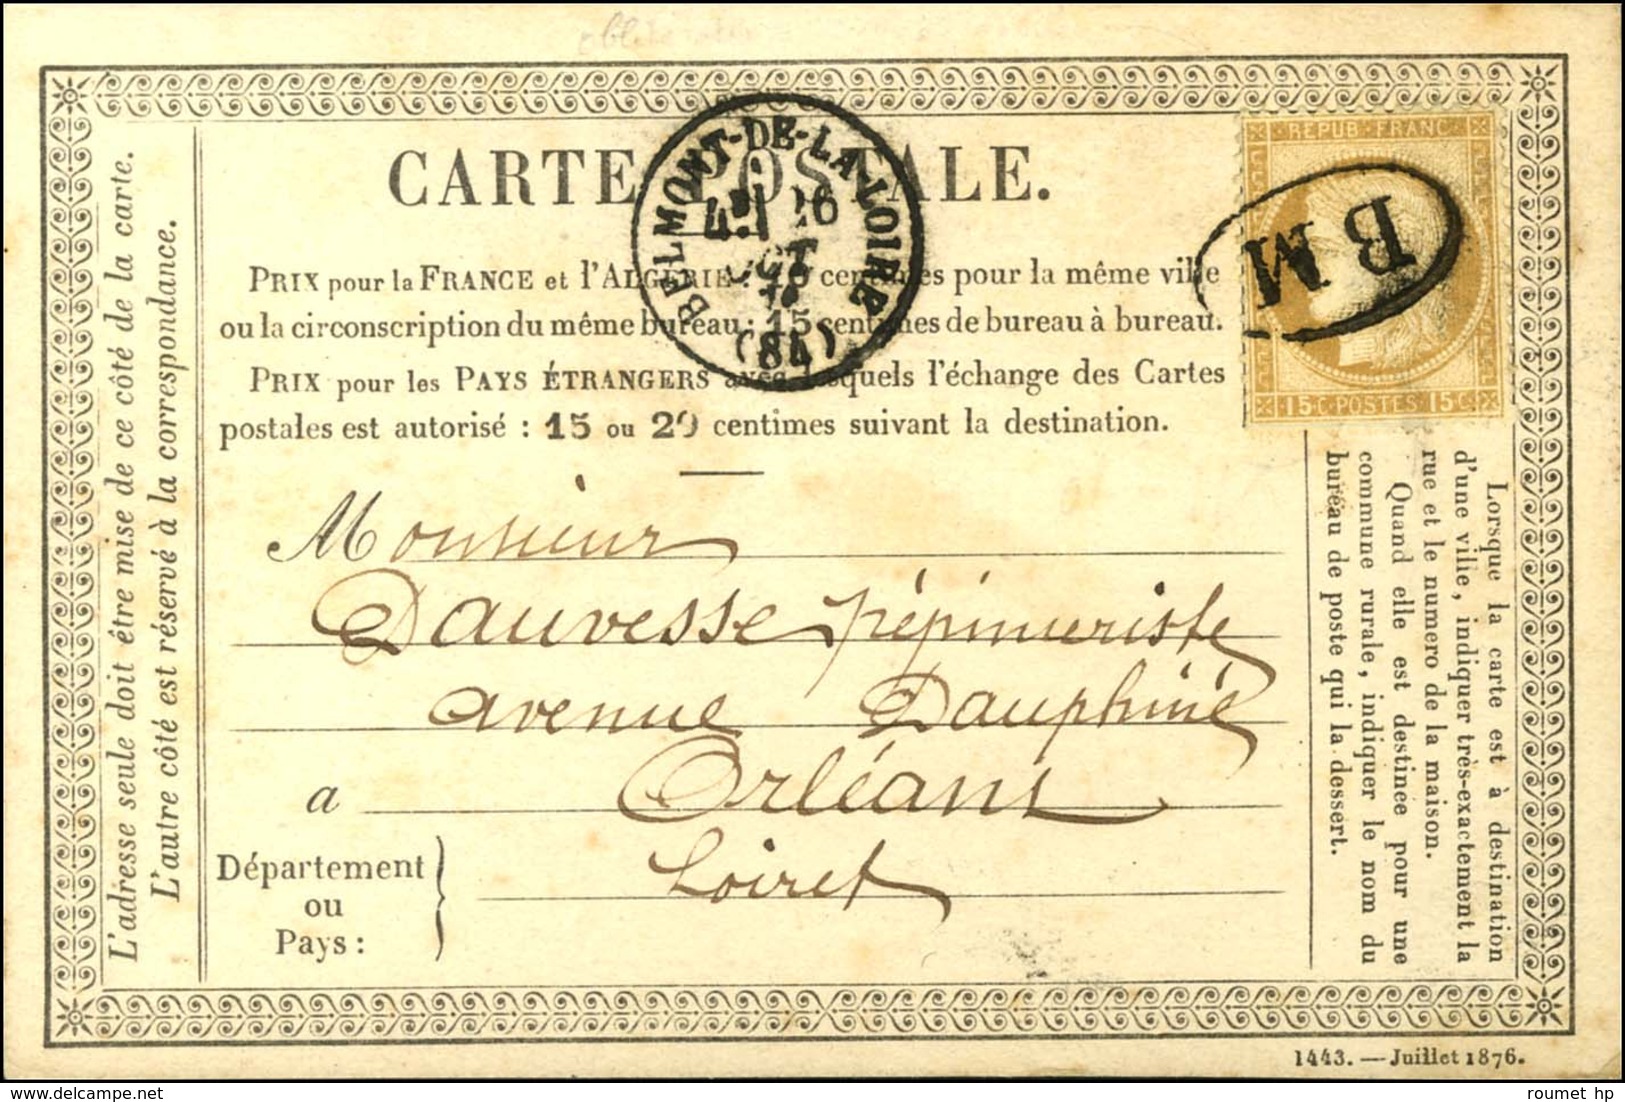 CARTE POSTALE.
BELMONT-DE-LA-LOIRE
26
OCT
(84)
REPUB. FRANC.
BM
15 C. POSTES 15 C.
PRIX pour la FRANCE et l'ALGÉRIE : 10 centimes pour la même ville
ou la circonscription du même bureau : 15 centimes de bureau à bureau.
PRIX pour les PAYS ÉTRANGERS avec lesquels l'échange des Cartes
postales est autorisé : 15 ou 20 centimes suivant la destination.
Monsieur
Dauvesse pépinieriste
avenue Dauphiné
a Orléans
Département
ou
Pays :
Loiret
L'adresse seule doit être mise de ce côté de la carte.
L'autre côté est réservé à la correspondance.
Lorsque la carte est à destination
d'une ville, indiquer très-exactement la
rue et le numero de la maison.
Quand elle est destinee pour une
commune rurale, indiquer le nom du
bureau de poste qui la dessert.
1443. — Juillet 1876.
roumet hp